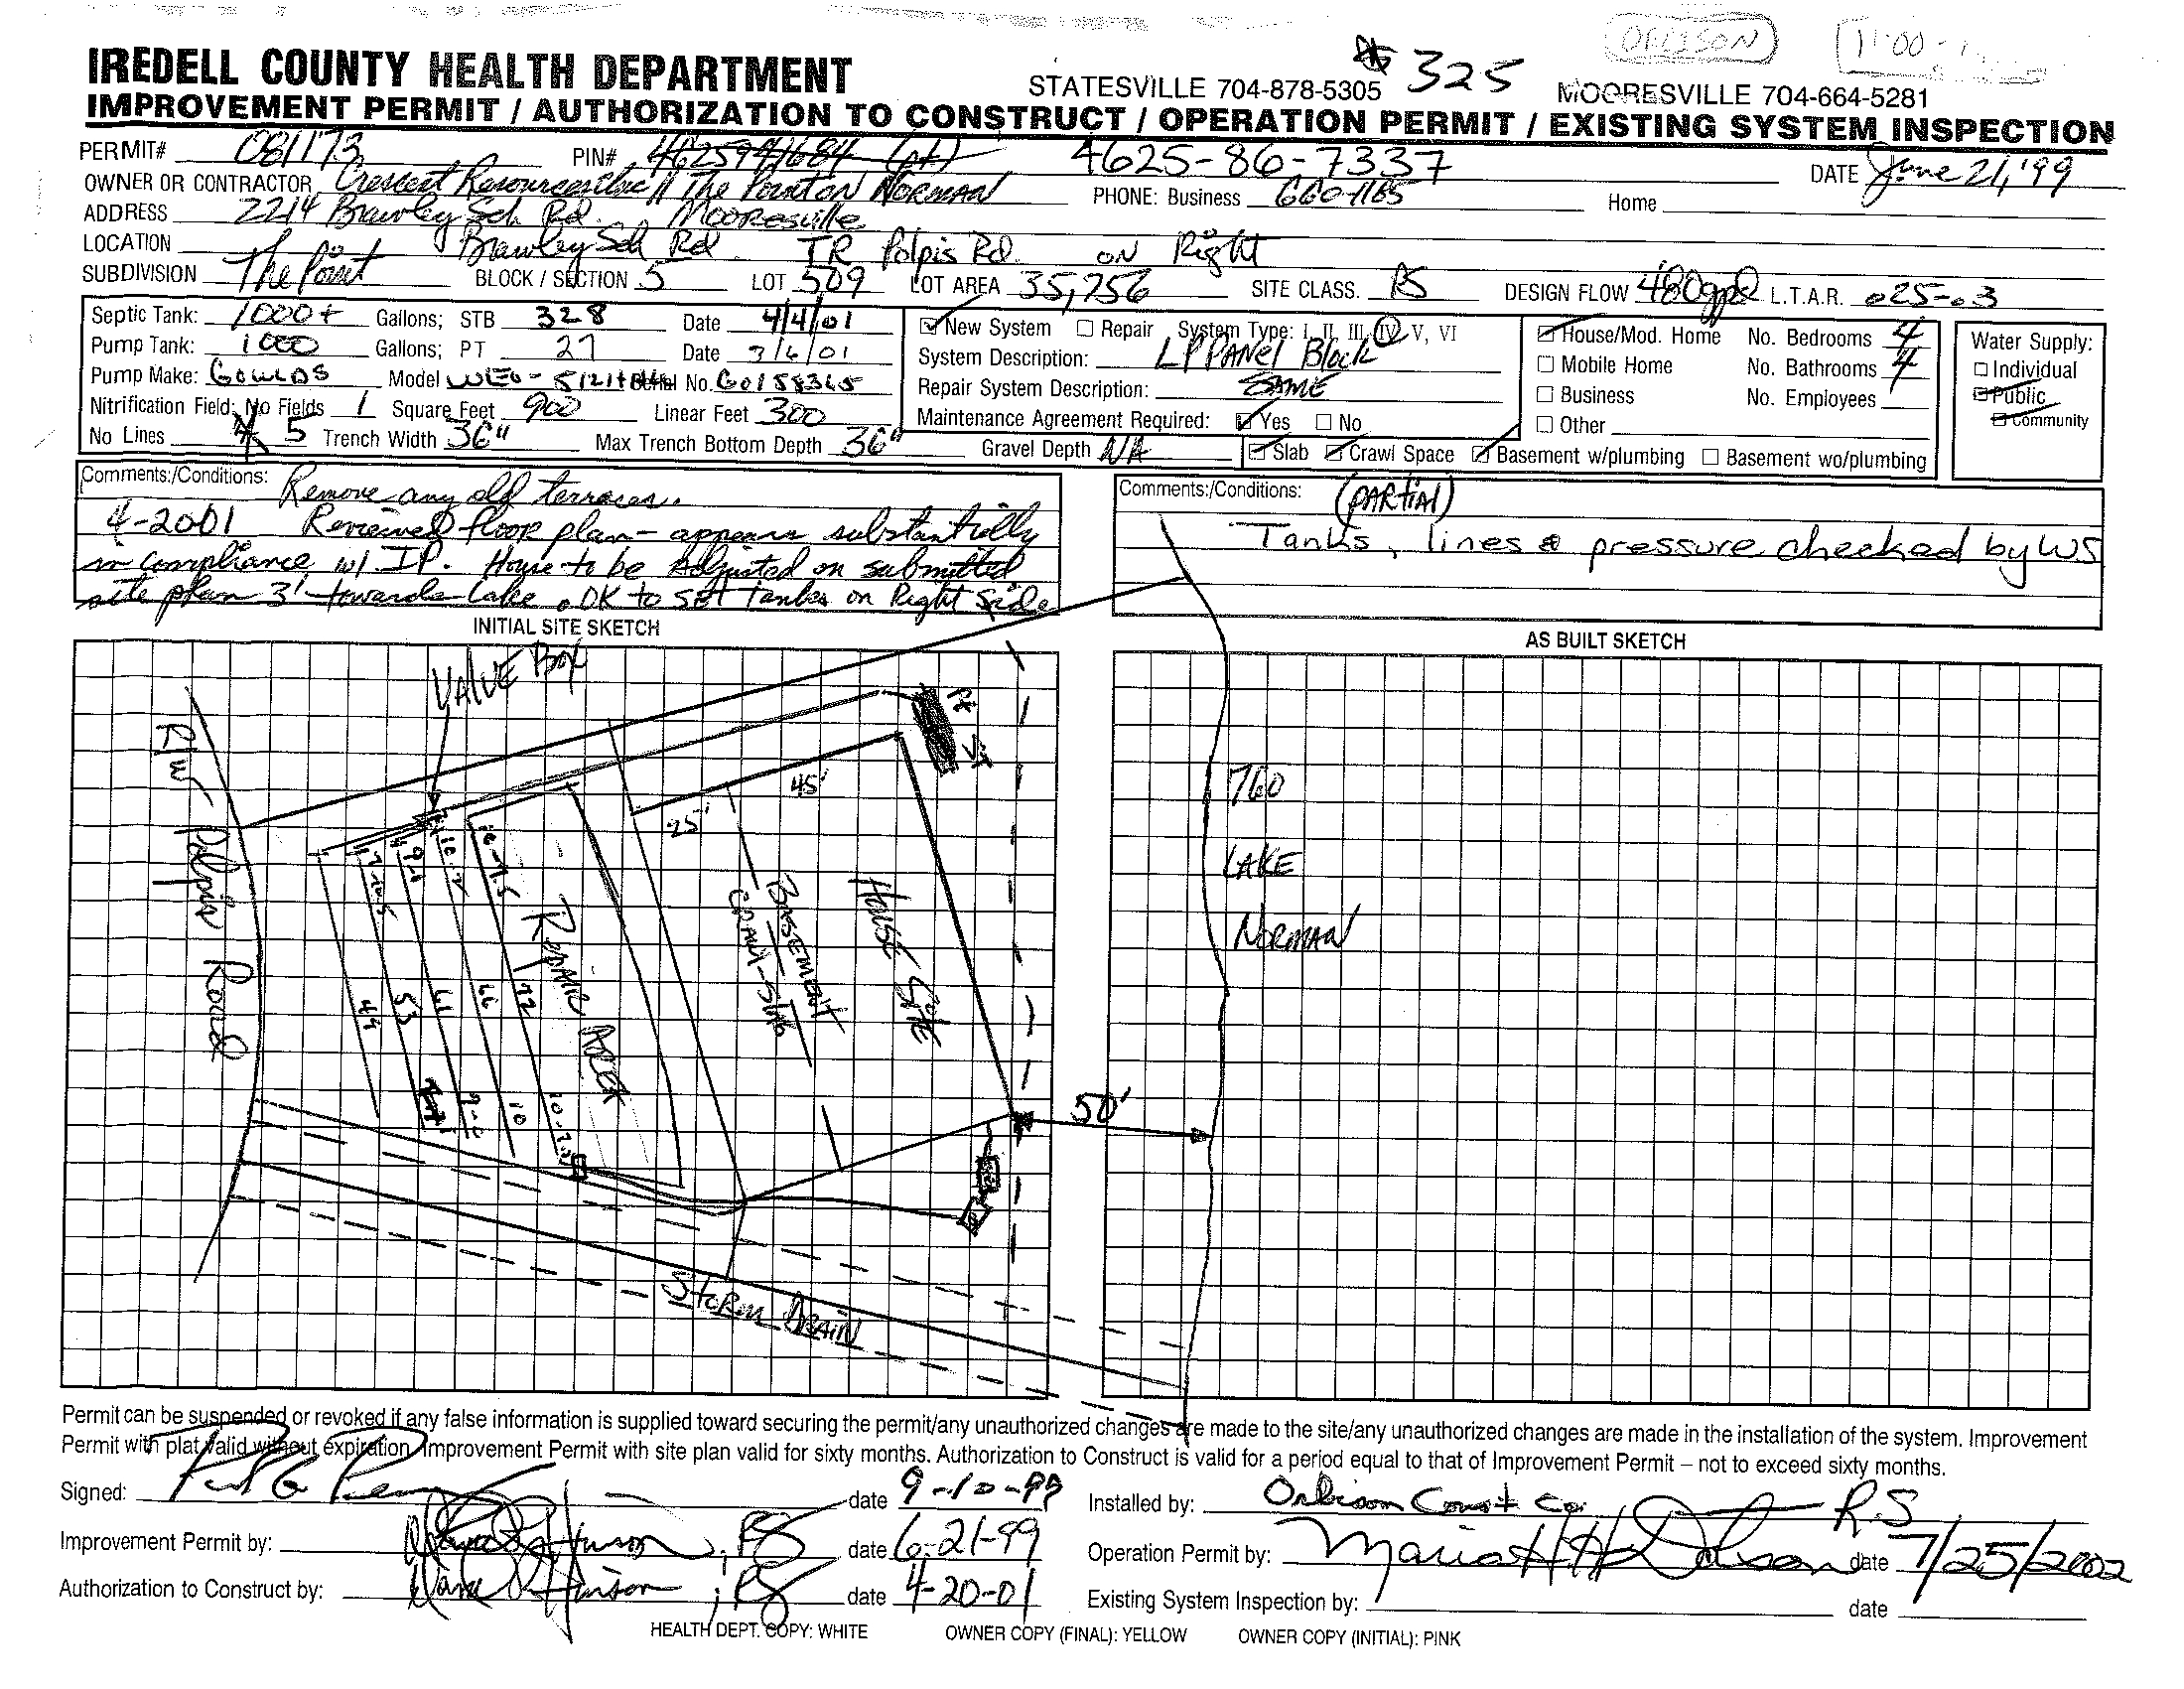 ORBISON
11:00
IREDELL COUNTY HEALTH DEPARTMENT STATESVILLE 704-878-5305 # 325 MOORESVILLE 704-664-5281
IMPROVEMENT PERMIT / AUTHORIZATION TO CONSTRUCT / OPERATION PERMIT / EXISTING SYSTEM INSPECTION
PERMIT# 081173 PIN# 4625941684 (pt) 4625-86-7337 DATE June 21, '99
OWNER OR CONTRACTOR Crescent Resources Inc // The Point on NORMAN PHONE: Business 660-1165 Home
ADDRESS 2214 Brawley Sch Rd. Mooresville
LOCATION Brawley Sch Rd TR Polpis Rd. on Right
SUBDIVISION The Point BLOCK / SECTION 5 LOT 509 LOT AREA 35,756 SITE CLASS. PS DESIGN FLOW 480gpd L.T.A.R. .025-.03
Septic Tank: 1000+ Gallons; STB 328 Date 4/4/01
Pump Tank: 1000 Gallons; PT 27 Date 3/6/01
Pump Make: GOULDS Model WE0- Serial No. G0158365
Nitrification Field: No Fields 1 Square Feet 900 Linear Feet 300
No Lines 4 5 Trench Width 36" Max Trench Bottom Depth 36" Gravel Depth NA
New System Repair System Type: I, II, III, IV, V, VI
System Description: LP PANEL Block
Repair System Description: SAME
Maintenance Agreement Required: Yes No
House/Mod. Home No. Bedrooms 4
Mobile Home No. Bathrooms 4
Business No. Employees
Other
Slab Crawl Space Basement w/plumbing Basement wo/plumbing
Water Supply:
Individual
Public
Community
Comments:/Conditions: Remove any old terraces.
4-2001 Reviewed floor plan - appears substantially
in compliance w/ IP. House to be Adjusted on submitted
site plan 3' towards lake. OK to set tanks on Right Side
Comments:/Conditions: (PARTIAL)
Tanks, lines & pressure checked by WS
INITIAL SITE SKETCH
VALVE BOX
R/W Polpis Road
PT
ST
45'
25'
HOUSE SITE
BASEMENT
CRAWL-SLAB
REPAIR AREA
49
53
61
66
72
10
50'
STORM DRAIN
AS BUILT SKETCH
760
LAKE
NORMAN
Permit can be suspended or revoked if any false information is supplied toward securing the permit/any unauthorized changes are made to the site/any unauthorized changes are made in the installation of the system. Improvement
Permit with plat valid without expiration. Improvement Permit with site plan valid for sixty months. Authorization to Construct is valid for a period equal to that of Improvement Permit – not to exceed sixty months.
Signed: date 9-10-99
Improvement Permit by: , RS date 6-21-99
Authorization to Construct by: , RS date 4-20-01
Installed by: Orbison Const Co. R.S
Operation Permit by: date 7/25/2002
Existing System Inspection by: date
HEALTH DEPT. COPY: WHITE OWNER COPY (FINAL): YELLOW OWNER COPY (INITIAL): PINK